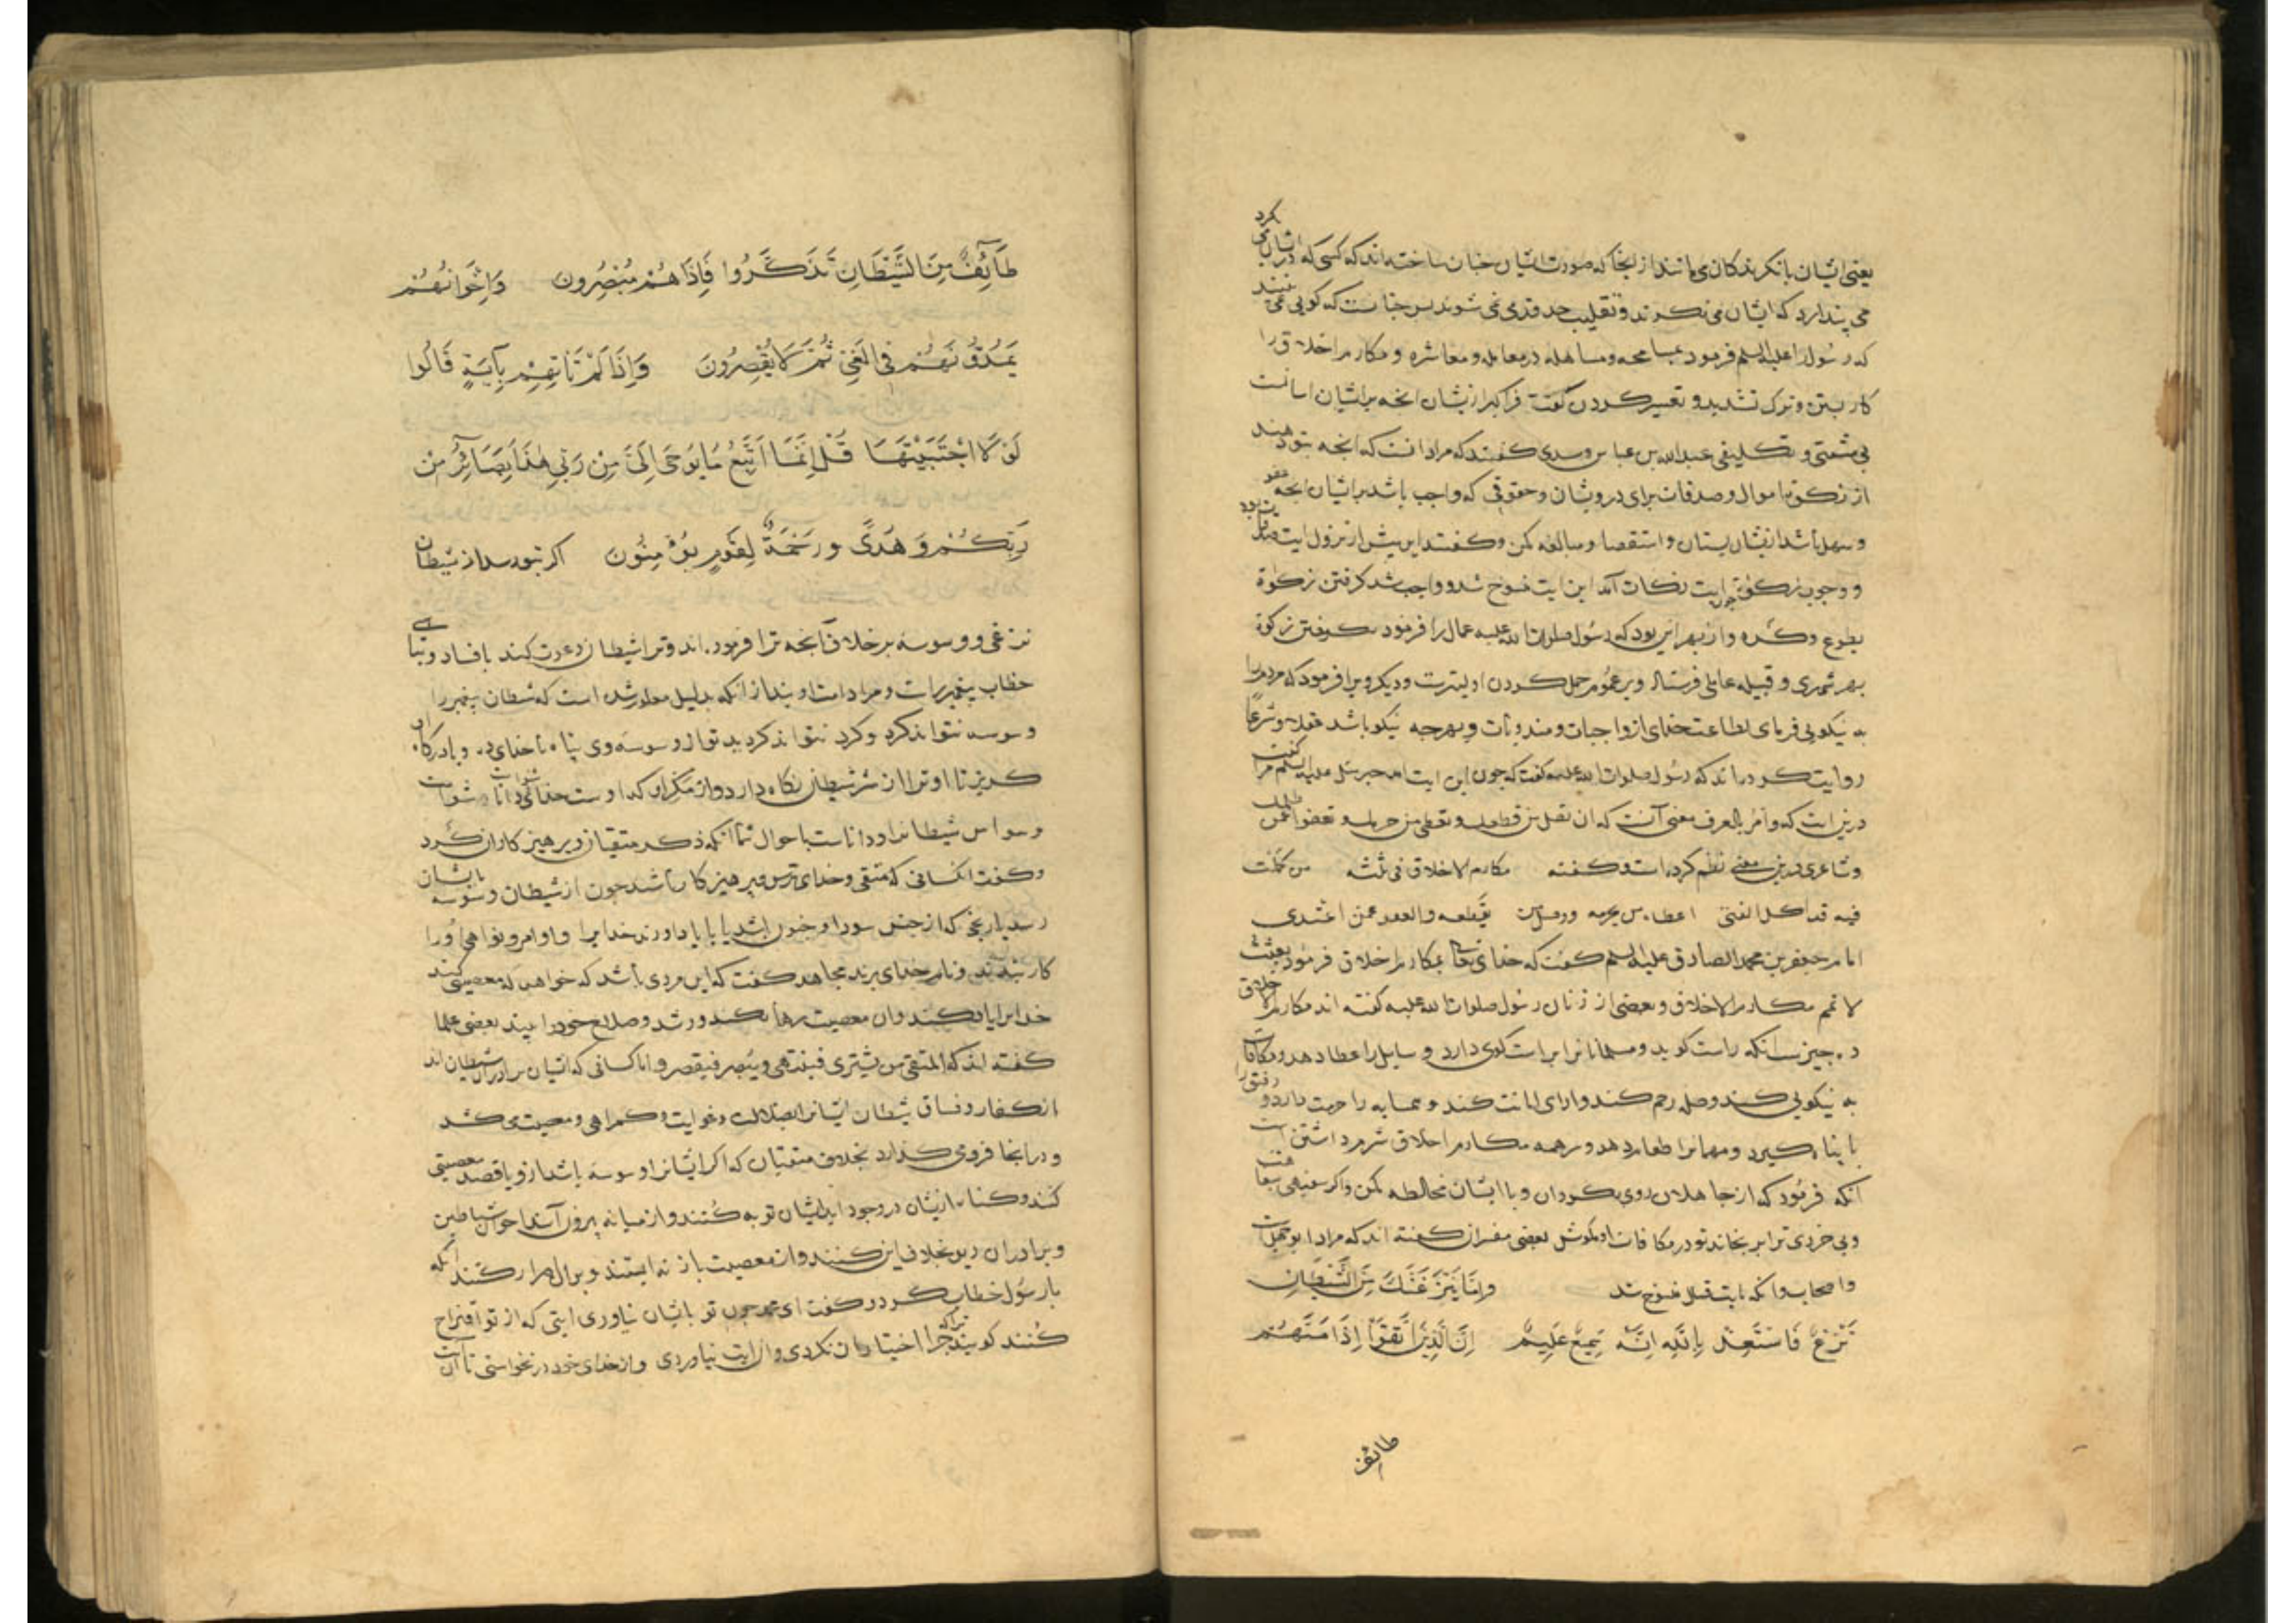 یعنی ایشان بانکرندکان می مانند از انجا که صورت ایشان چنان ساخته اند که کسی که در ایشان نکرد
می پندارد که ایشان می نکرند و تقلیب حدقه می شوند پس چنانست که کویی می بینند
که رسول را علیه السلم فرمود بمسامحه و مساهله در معامله و معاشره و مکارم اخلاق را
کار بستن و ترک تشدید و تعسیر کردن کفت فراکیر از یشان انچه بر ایشان اسانست
بی مشقتی و تکلیفی عبدالله بن عباس و سدی کفتند که مراد انست که انچه بتو دهند
از زکوة اموال و صدقات برای درویشان و حقوقی که واجب باشد بر ایشان انچه عفو
و سهل باشد از یشان بستان و استقصا و مبالغه مکن و کفتند این پیش از نزول ایت
و وجوب زکوة چون ایت زکات آمد این ایت منسوخ شد و واجب شد کرفتن زکوة
بطوع و کره و از بهر این بود که رسول صلوات الله علیه عمال را فرمود بکرفتن زکوة
بهر شهری و قبیله عاملی فرستاد و بر عموم حمل کردن اولیترست و دیکر ویرا فرمود که مردم را
به نیکویی فرمای بطاعت خدای از واجبات و مندوبات و بهرچه نیکو باشد عقلا و شرعا
روایت کرده اند که رسول صلوات الله علیه کفت که چون این ایت امد جبرئیل علیه السلم مرا کفت
درین ایت که وامر بالعرف معنی آنست که ان تصل من قطعک و تعطی من حرمک و تعفو عمن ظلمک
و شاعری درین معنی نظم کرده است و کفته مکارم الاخلاق فی ثلثة من کملت
فیه فذاک الفتی اعطاء من یحرمه و وصل من یقطعه والعفو عمن اعتدی
امام جعفر بن محمد الصادق علیه السلم کفت که خدای تعالی بمکارم اخلاق فرمود بعثت
لاتمم مکارم الاخلاق و بعضی از زنان رسول صلوات الله علیه کفته اند مکارم الاخلاق
ده چیز است انکه راست کوید و مسلمانانرا براست کوی دارد و سایل را عطا دهد و مکافات
به نیکویی کند و صله رحم کند و ادای امانت کند و همسایه را حرمت دارد و رفیق را
با پناه کیرد و مهمانرا طعام دهد و سر همه مکارم اخلاق شرم داشتن است
آنکه فرمود که از جاهلان روی بکردان و با ایشان مخالطه مکن و اکر سفیهی سفاهت
و بی خردی ترا برنجاند تو در مکافات او مکوش بعضی مفسران کفته اند که مراد ابو جهلست
و اصحاب و انکه بایت قتل منسوخ شد وَاِمَّا یَنْزَغَنَّکَ مِنَ الشَّیْطَانِ
نَزْغٌ فَاسْتَعِذْ بِاللّٰهِ اِنَّهُ سَمِیعٌ عَلِیمٌ اِنَّ الَّذِینَ اتَّقَوْا اِذَا مَسَّهُمْ
طائف
طَآئِفٌ مِنَ الشَّیْطَانِ تَذَکَّرُوا فَاِذَا هُمْ مُبْصِرُونَ وَاِخْوَانُهُمْ
یَمُدُّونَهُمْ فِی الْغَیِّ ثُمَّ لَا یُقْصِرُونَ وَاِذَا لَمْ تَاتِهِمْ بِآیَةٍ قَالُوا
لَوْلَا اجْتَبَیْتَهَا قُلْ اِنَّمَا اَتَّبِعُ مَا یُوحَی اِلَیَّ مِنْ رَبِّی هٰذَا بَصَائِرُ مِنْ
رَبِّکُمْ وَهُدًی وَرَحْمَةٌ لِقَوْمٍ یُؤْمِنُونَ اکر بتو رسد از شیطان
نزغی و وسوسه بر خلاف آنچه ترا فرموده اند و ترا شیطان دعوت کند بافساد و تباهی
خطاب پیغمبر راست و مراد امت اویند از انکه بدلیل معلوم شده است که شیطان پیغمبر را
وسوسه نتواند کرد و کرد نتواند کرد بدتو از وسوسه وی پناه با خدای ده و بادرکاه او
کریز تا او ترا از شر شیطان نکاه دارد و از مکر او که اوست خدای دانا و شنواست
وسواس شیطانرا و داناست باحوال شما آنکه ذکر متقیان و پرهیزکاران کرد
و کفت انکسانی که متقی و خدای ترس و پرهیزکار باشند چون از شیطان وسوسه بایشان
رسد یا رنجی که از جنس سودا و جنون باشد یا یاد اورند خدایرا و اوامر و نواهی او را
کار بندند و نام خدای برند مجاهد کفت که این مردی باشد که خواهد که معصیتی کند
خدایرا یاد کند و ان معصیت رها بکند و رشد و صلاح خود را بیند بعضی علما
کفته اند که المتقی من یشتری فینتهی و یبصر فیقصر و اما کسانی که ایشان برادران شیطان اند
از کفار و فساق شیطان ایشانرا بضلالت و غوایت و کمراهی و معصیت می کشد
و در انجا فرو می کذارد بخلاف متقیان که اکر ایشانرا وسوسه باشد از و یا قصد معصیتی
کنند و کناه از یشان در وجود اید ایشان توبه کنند و از میانه بیرون آیند اخوان شیاطین
و برادران دیو بخلاف این کنند و از معصیت باز نه ایستند و بر ان اصرار کنند انکه
با رسول خطاب کرد و کفت ای محمد چون تو بایشان نیاوری ایتی که از تو اقتراح
کنند کویند چرا اختیار ان نکردی و ان ایت نیاوردی و از خدای خود در نخواستی تا آن